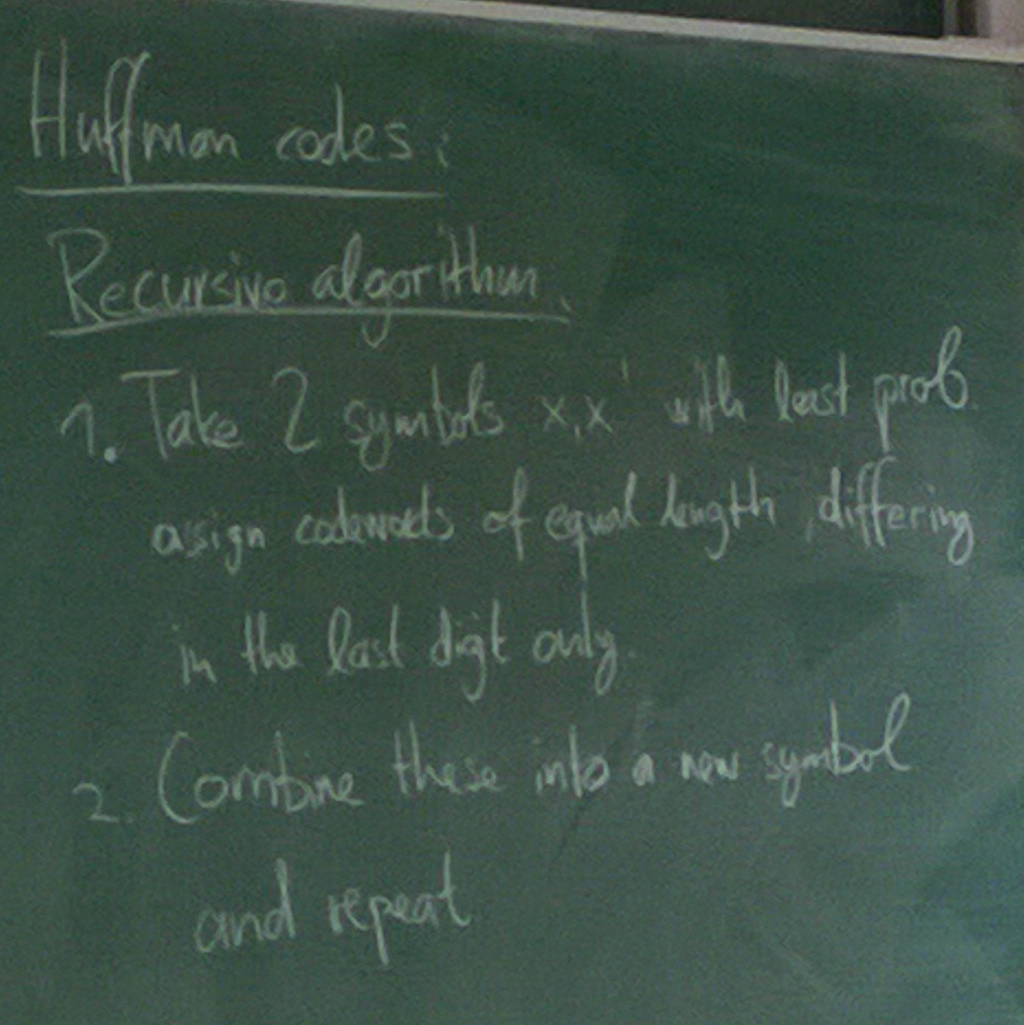 Huffman codes:
Recursive algorithm.
1. Take 2 symbols x,x' with least prob.
assign codewords of equal length, differing
in the last digit only.
2. Combine these into a new symbol
and repeat